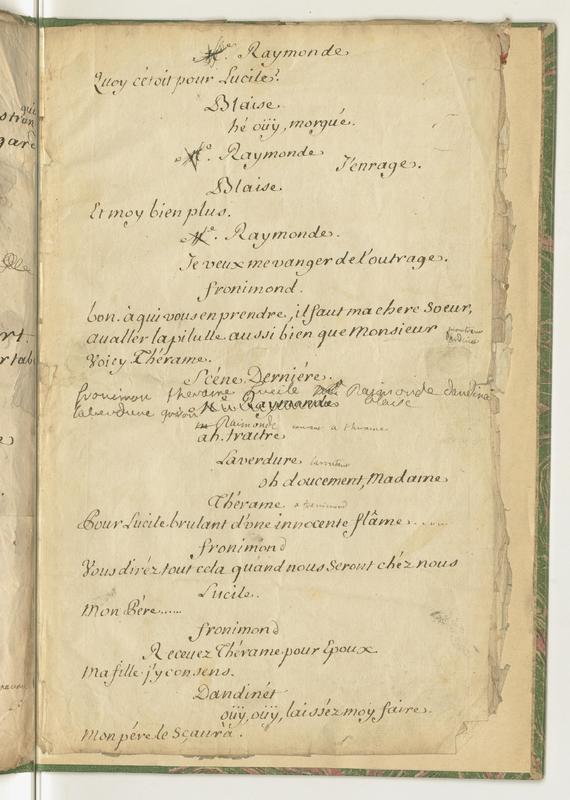 M.lle Raymonde.
Quoy c'étoit pour Lucile?
Blaise.
hé oüy, morgué.
M.lle Raymonde
J'enrage.
Blaise.
Et moy bien plus.
M.lle Raymonde.
Je veux me vanger de l'outrage.
fronimond.
bon. à qui vous en prendre, il faut ma chere Soeur,
aualler la pilulle aussi bien que Monsieur
Voicy Thérame.
Scéne Derniére.
fronimon therame lucile Raimonde dandinet
laverdure blaise
Raymonde
Raimonde a therame
ah. traitre
Laverdure
oh doucement, Madame
Thérame a fronimond
Pour Lucile brulant d'vne innocente flâme.....
fronimond
Vous diréz tout cela quand nous seront chéz nous
Lucile.
Mon Pére......
fronimond
Receuez Thérame pour Epoux
Ma fille j'y consens.
Dandinét
oüy, oüy, laisséz moy faire.
Mon pére le Sçaura.